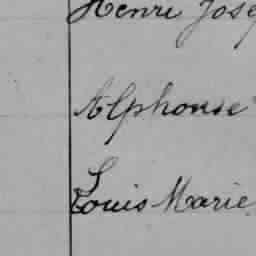 Henri Jose
Alphonse
Louis Marie